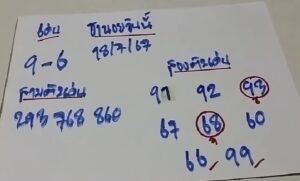 เด่น ฮานอยวันนี้
18/7/67
9-6
สามตัวเด่น สองตัวเด่น
293 768 860
97 92 93
67 68 60
66 99